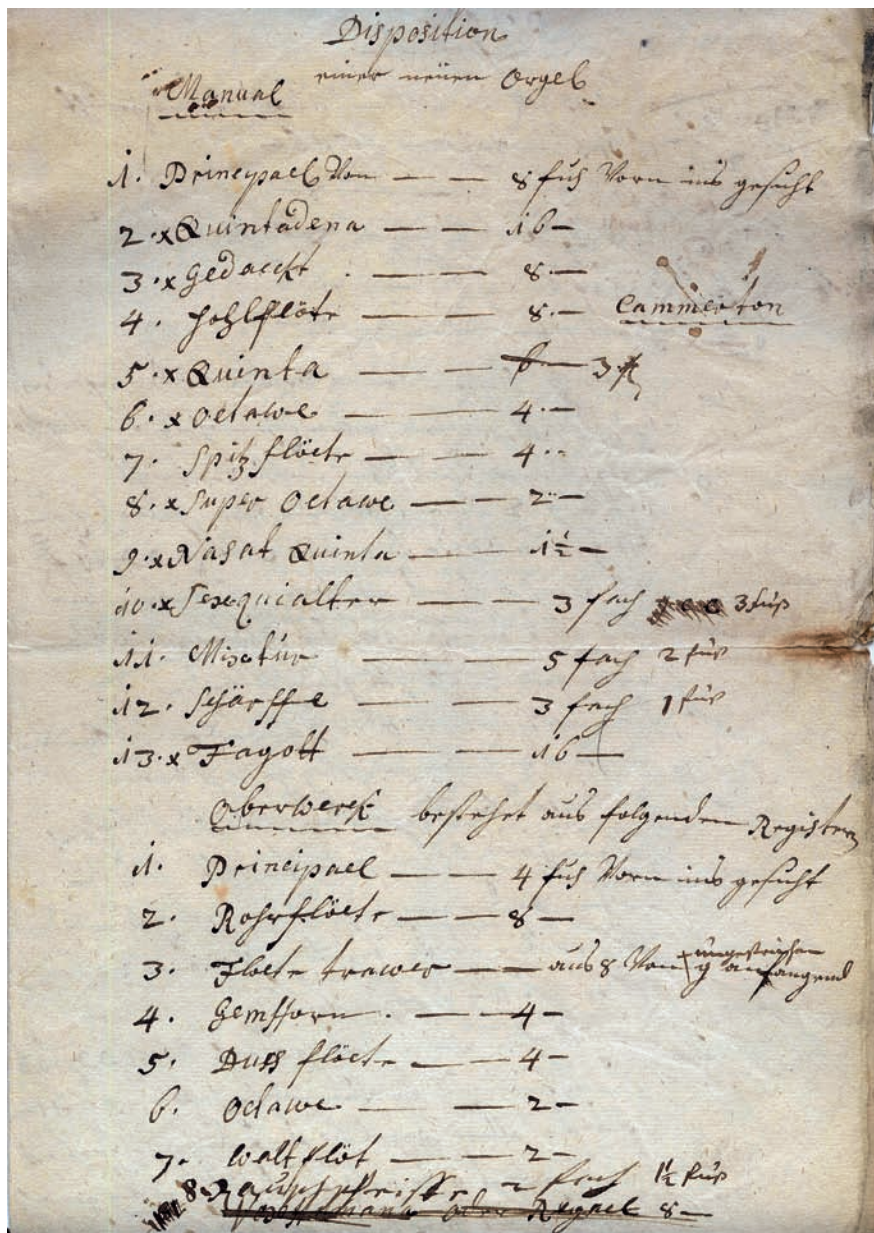 Disposition
einer neüen Orgel
Manual
1. Principael Von — — 8 fuß Vorn ins gesicht
2. x Quintadena — — 16 —
3. x Gedackt — — 8 —
4. Hohlflöte — — 8 — Cammerton
5. x Quinta — — 6 — 3 f
6. x Octawe — — 4 —
7. Spitz flöete — — 4
8. x Super Octawe — — 2 —
9. x Nasat Quinta — — 1½ —
10. x Sexquialter — — 3 fach 3 fuß
11. Mixtur — — 5 fach 2 fuß
12. Schärffe — — 3 fach 1 fuß
13. x Fagott — — 16 —
Oberwerck bestehet aus folgenden Registern
1. Principael — — 4 fuß Vorn ins gesicht
2. Rohrflöete — — 8 —
3. Floete trawer — — aus 8 Von ungestrichen g anfangend
4. Gemshorn — — 4 —
5. Duss flöete — — 4 —
6. Octawe — — 2 —
7. Walt flöt — — 2 —
8. Rauschpfeiffe 2 fach 1½ fuß
oder Regael 8 —